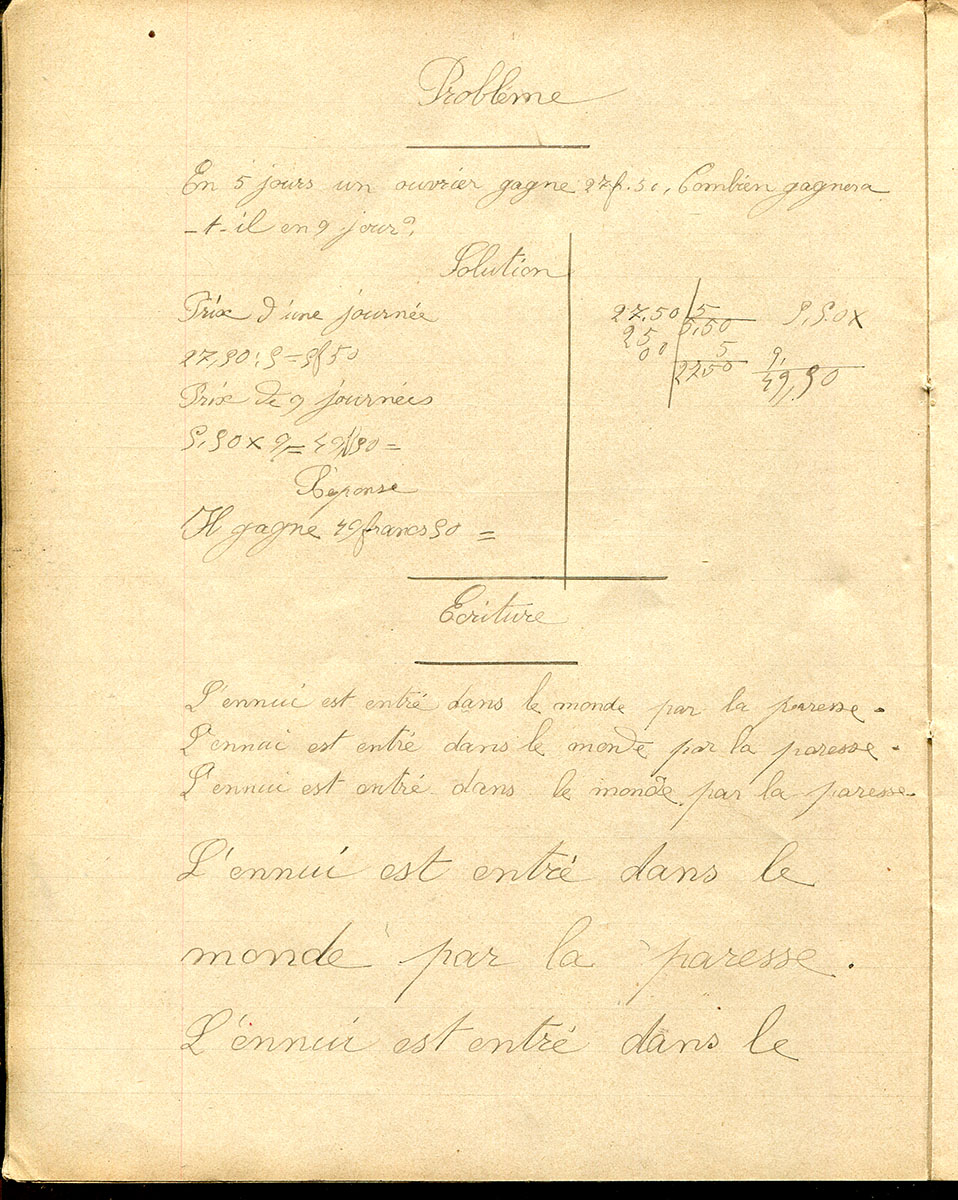 Problème
En 5 jours un ouvrier gagne 27f.50. Combien gagnera
-t-il en 9 jour?
Solution
Prix d'une journée
27,50 : 5 = 5f50
Prix de 9 journées
5,50 x 9 = 49f50 =
Réponse
Il gagne 49francs50 =
27.50 5
25 5,50
00 5
27.50
5,50x
9,
49,50
Ecriture
L'ennui est entré dans le monde par la paresse.
L'ennui est entré dans le monde par la paresse.
L'ennui est entré dans le monde par la paresse.
L'ennui est entré dans le
monde par la paresse.
L'ennui est entré dans le